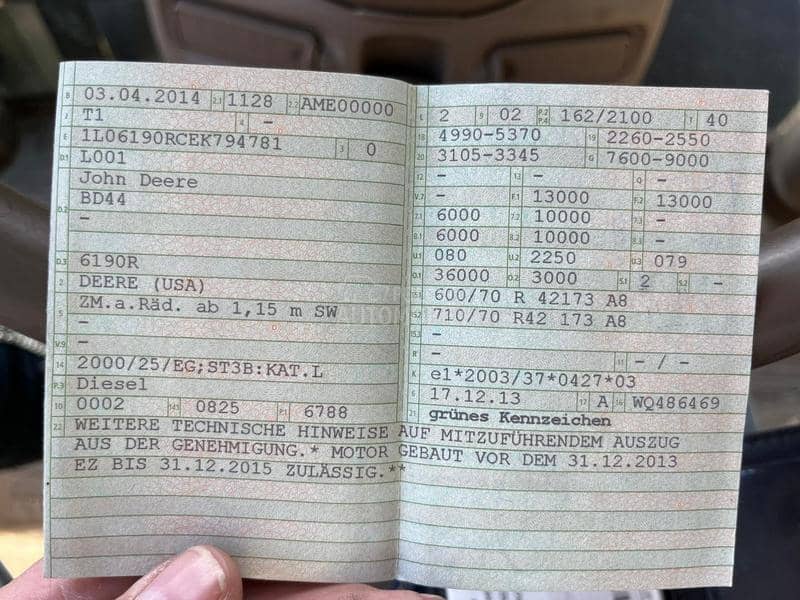 B 03.04.2014 2.1 1128 2.2 AME00000
J T1 4 -
E 1L06190RCEK794781 3 0
D.1 L001
John Deere
D.2 BD44
-
D.3 6190R
2 DEERE (USA)
5 ZM.a.Räd. ab 1,15 m SW
-
V.9 -
14 2000/25/EG;ST3B:KAT.L
P.3 Diesel
10 0002 14.1 0825 P.1 6788
L 2 9 02 P.2 P.4 162/2100 T 40
18 4990-5370 19 2260-2550
20 3105-3345 G 7600-9000
12 - 13 - Q -
V.7 - F.1 13000 F.2 13000
7.1 6000 7.2 10000 7.3 -
8.1 6000 8.2 10000 8.3 -
U.1 080 U.2 2250 U.3 079
O.1 36000 O.2 3000 S.1 2 S.2 -
15.1 600/70 R 42173 A8
15.2 710/70 R42 173 A8
15.3 -
R - 11 - / -
K e1*2003/37*0427*03
6 17.12.13 17 A 16 WQ486469
21 grünes Kennzeichen
22 WEITERE TECHNISCHE HINWEISE AUF MITZUFÜHRENDEM AUSZUG
AUS DER GENEHMIGUNG.* MOTOR GEBAUT VOR DEM 31.12.2013
EZ BIS 31.12.2015 ZULÄSSIG.**